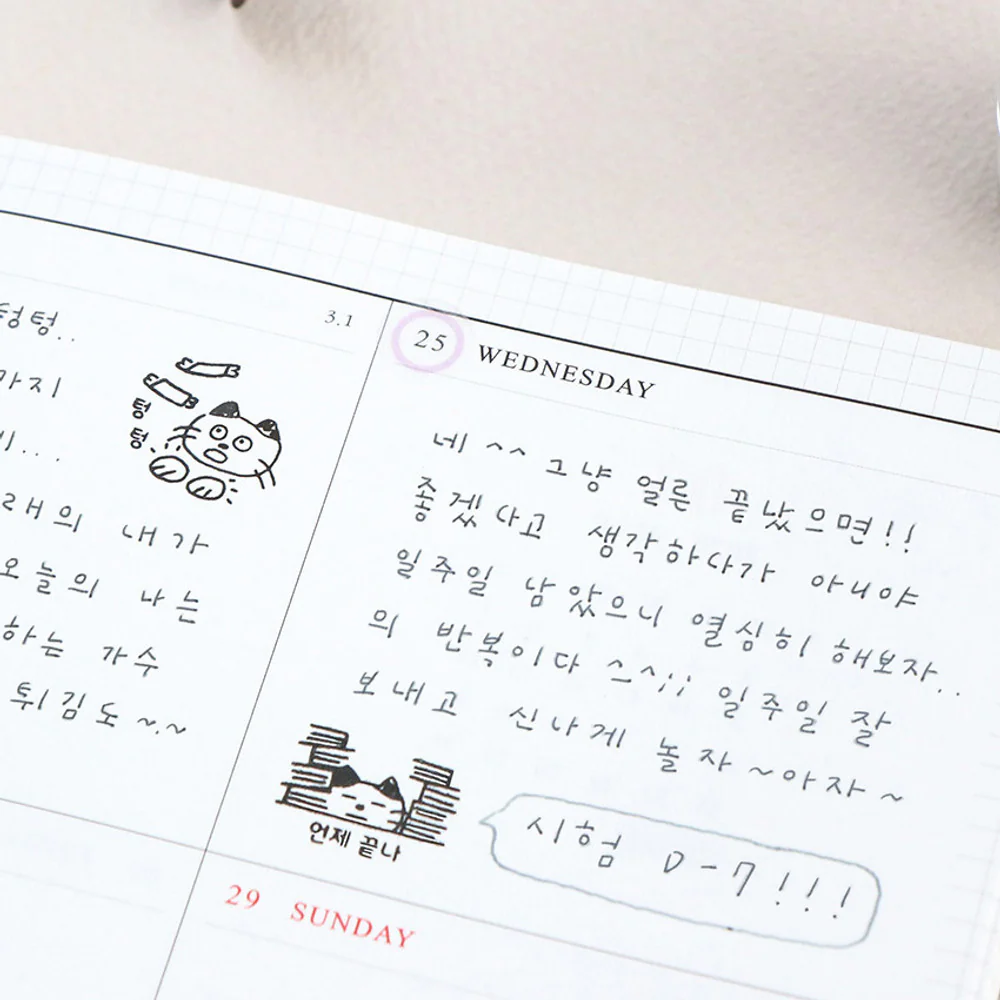 텅텅..
3.1
까지
텅
텅
...
노래의 내가
오늘의 나는
하는 가수
튀김도~.~
25 WEDNESDAY
네 ^^ 그냥 얼른 끝났으면!!
좋겠다고 생각하다가 아니야
일주일 남았으니 열심히 해보자..
의 반복이다 ^_^;; 일주일 잘
보내고 신나게 놀자~아자~
언제 끝나
시험 D-7!!!
29 SUNDAY